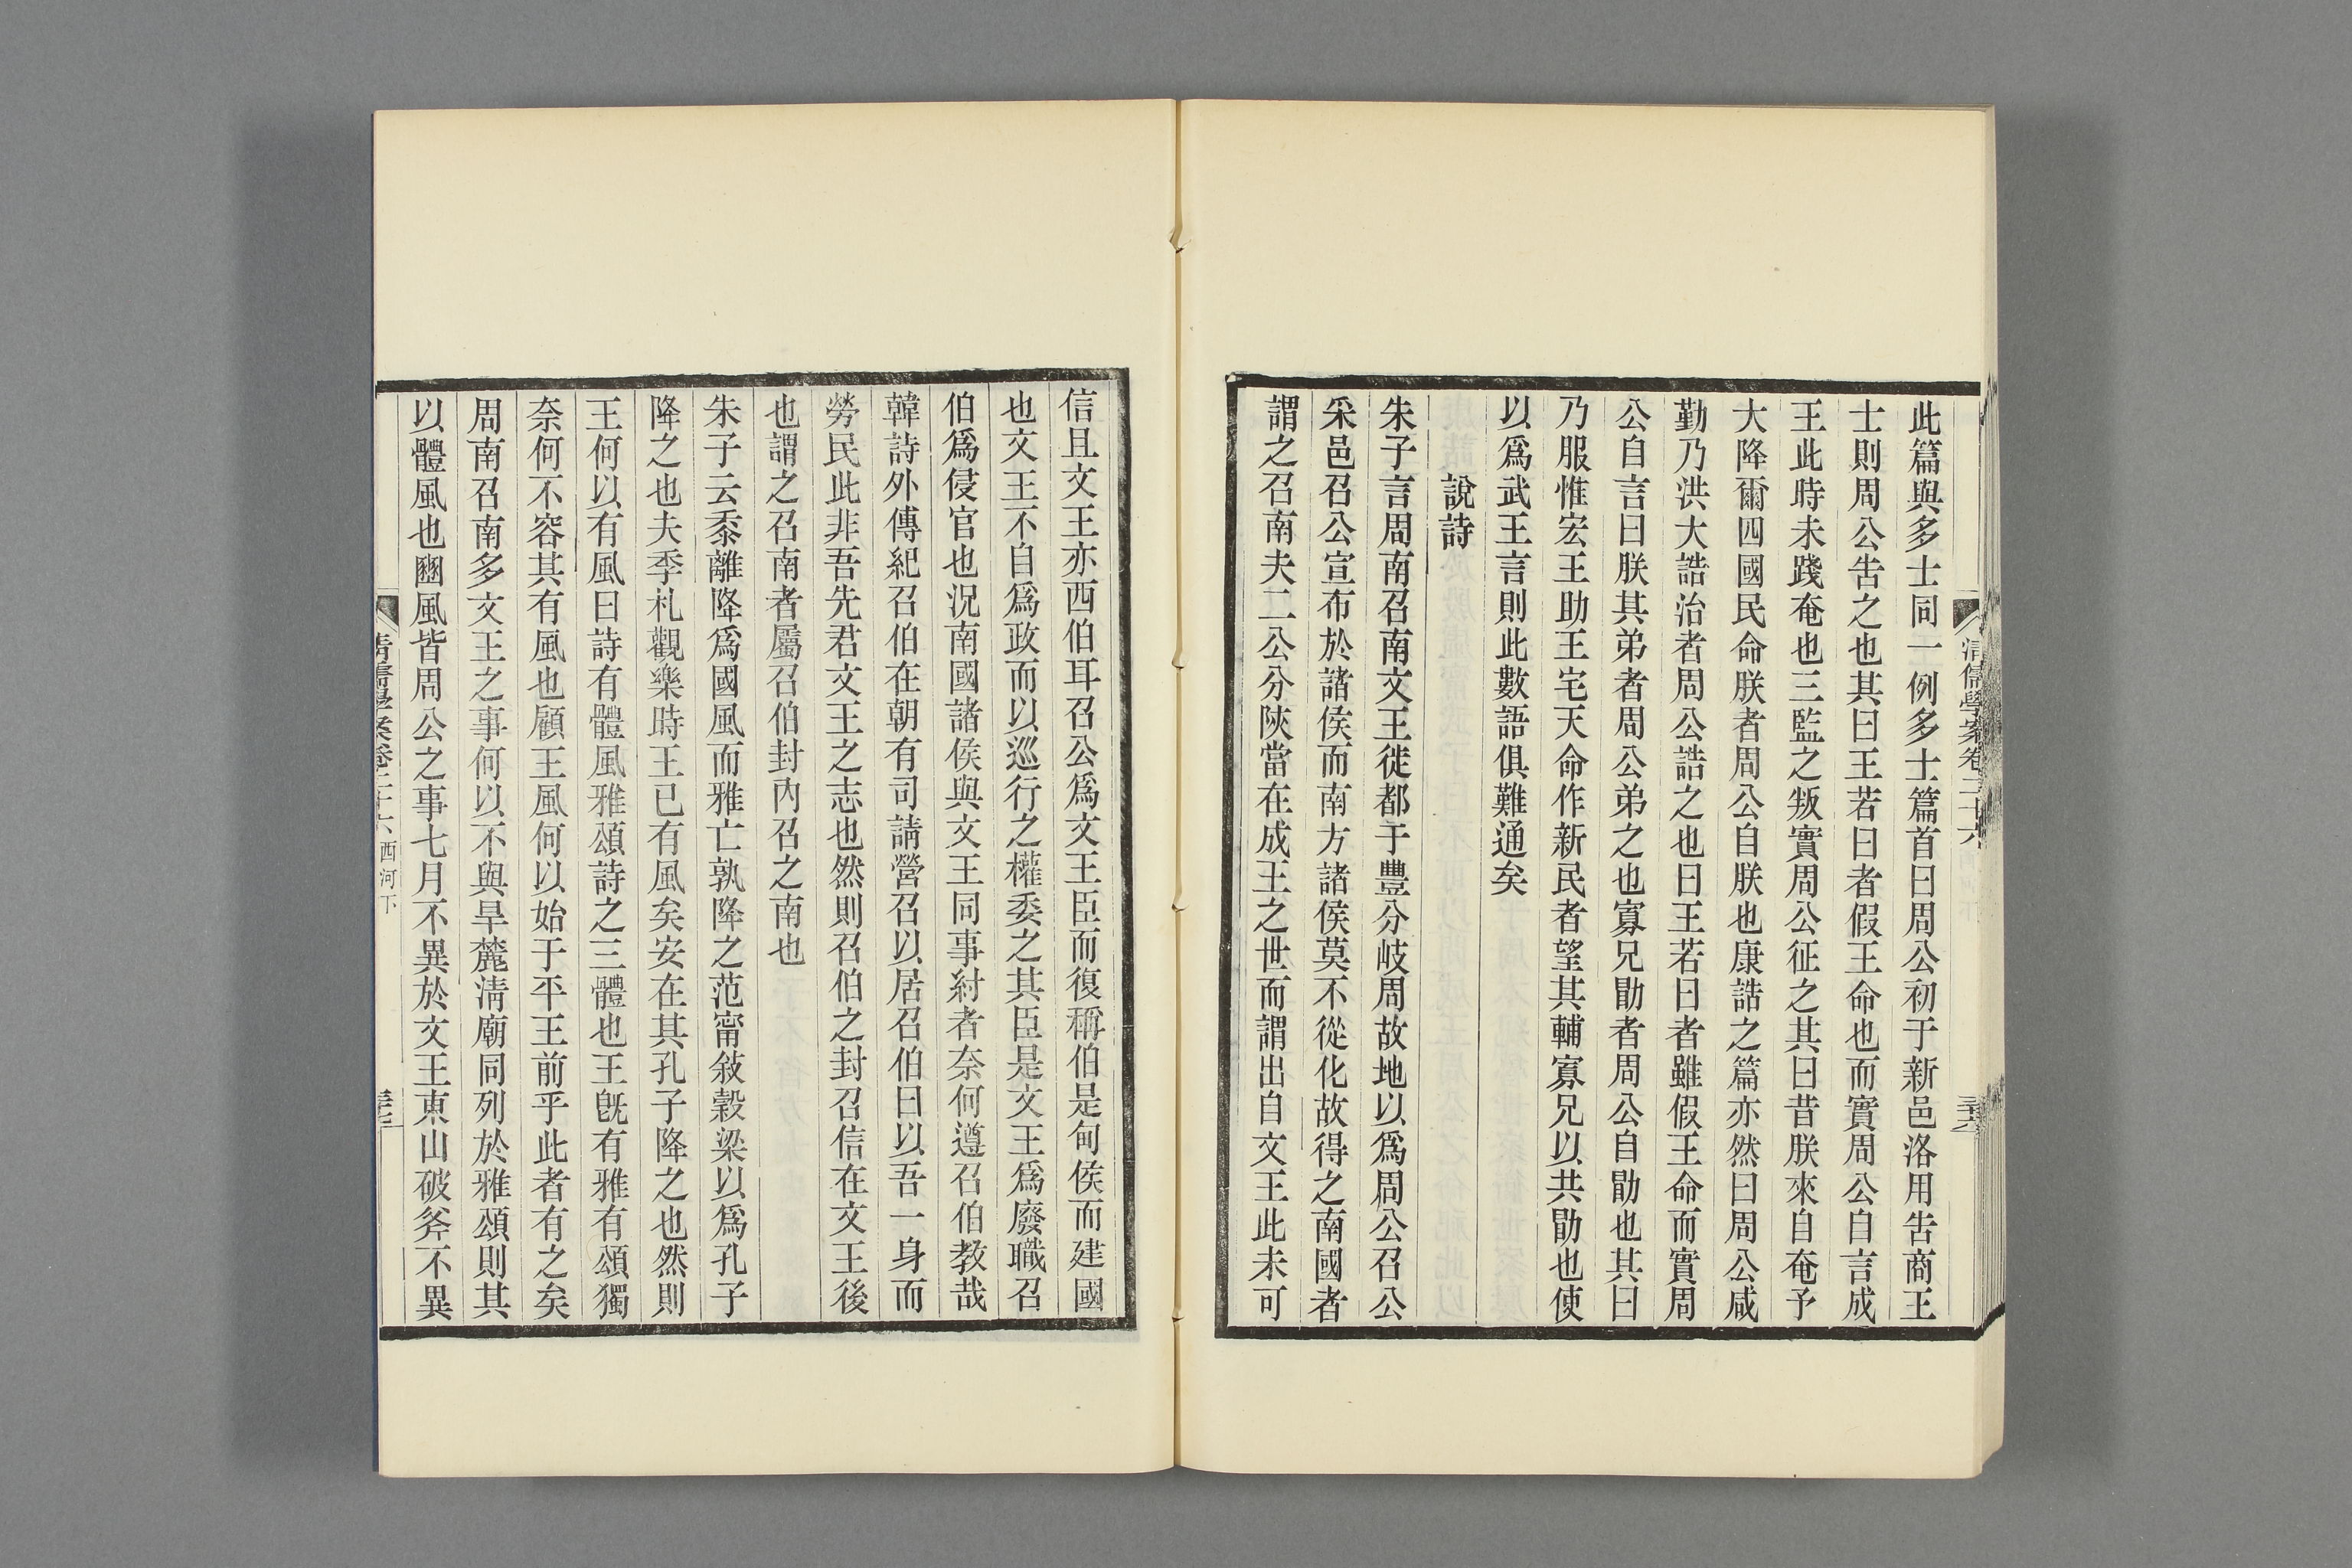 清儒學案卷二十六
三十六
此篇與多士同一例多士篇首曰周公初于新邑洛用告商王
士則周公告之也其曰王若曰者假王命也而實周公自言成
王此時未踐奄也三監之叛實周公征之其曰昔朕來自奄予
大降爾四國民命朕者周公自朕也康誥之篇亦然曰周公咸
勤乃洪大誥治者周公誥之也曰王若曰者雖假王命而實周
公自言曰朕其弟者周公弟之也寡兄勖者周公自勖也其曰
乃服惟宏王助王宅天命作新民者望其輔寡兄以共勖也使
以爲武王言則此數語俱難通矣
說詩
朱子言周南召南文王徙都于豐分岐周故地以爲周公召公
采邑召公宣布於諸侯而南方諸侯莫不從化故得之南國者
謂之召南夫二公分陝當在成王之世而謂出自文王此未可
信且文王亦西伯耳召公爲文王臣而復稱伯是甸侯而建國
也文王不自爲政而以巡行之權委之其臣是文王爲廢職召
伯爲侵官也況南國諸侯與文王同事紂者奈何遵召伯教哉
韓詩外傳紀召伯在朝有司請營召以居召伯曰以吾一身而
勞民此非吾先君文王之志也然則召伯之封召信在文王後
也謂之召南者屬召伯封內召之南也
朱子云黍離降爲國風而雅亡孰降之范甯敍穀梁以爲孔子
降之也夫季札觀樂時王已有風矣安在其孔子降之也然則
王何以有風曰詩有體風雅頌詩之三體也王旣有雅有頌獨
奈何不容其有風也顧王風何以始于平王前乎此者有之矣
周南召南多文王之事何以不與旱麓淸廟同列於雅頌則其
以體風也豳風皆周公之事七月不異於文王東山破斧不異
清儒學案卷二十六 西河下
三十七